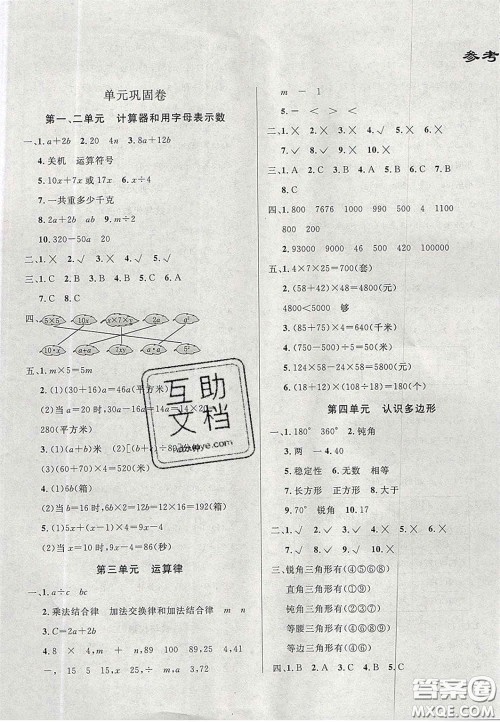 参考
单元巩固卷
第一、二单元 计算器和用字母表示数
一、1.a+2b 2.20 4n 3.8a+12b
4.关机 运算符号
5.10x+7x或17x 6.x÷4
7.一共重多少千克
8.2a+2b ab 9.m÷2
10.320-50a 20
二、1.× 2.× 3.× 4.√ 5.×
三、1.C 2.B 3.B 4.A 5.C 6.C
7.C 8.C
四、5×5 10x x×7×y a+2
10·x a·a 7xy 5²
五、1.m×5=5m
2.(1)(30+16)×a=46a(平方米)
(2)当a=20时,46a=46×20-
280(平方米)
3.(1)(a+b)米 (2)[6(a+b)
(3)(60+
×10=520(米)
4.(1)6b(箱)
(2)当b=112时,6b=6×112=672(箱)
5.(1)5x+4x=9x(秒)
(2)当x=14时,9x=9×14=126(秒)
第三单元 运算律
一、1.a÷c bc
2.乘法结合律 加法交换律和加法结合律 m n
3.C=2a+2b
4.8 × 4,+ m·n,x 10,8
- ,15 5 15,a m,3.87
m-1
二、1.× 2.× 3.× 4.× 5.×
6.× 7.√ 8.√ 9.√ 10.×
三、1.C 2.B 3.C 4.A 5.B 6.A 7.B
8.C
四、1.800 7676 1000 990 500 4 1100
200
2.93000 90000 10000 4000 8000
五、1.4×7×25=700(套)
2.(58+42)×48=4800(元)
4800<5000 够
3.(85+65)×4=600(千米)
4.124×58-24×58=5800(元)
5.(18+32)×15=750(米)
6.(97-82)×5=75(米)
第四单元 认识多边形
一、1.180° 360° 2.钝角
3.两 一 4.20
5.稳定性 6.无数 相等
7.长方形 正方形 8.17
9.70° 锐角 10.17
二、1.√ 2.× 3.√ 4.× 5.×
6.√ 7.√ 8.√ 9.√ 10.×
三、锐角三角形有(④⑤⑥⑧)
直角三角形有(②③)
钝角三角形有(①⑦⑨)
等腰三角形有(③④⑨)
等边三角形有(④)
四、1.B 2.A 3.A 4.B 5.C
互助
文档
答案圈
MXQE.COM